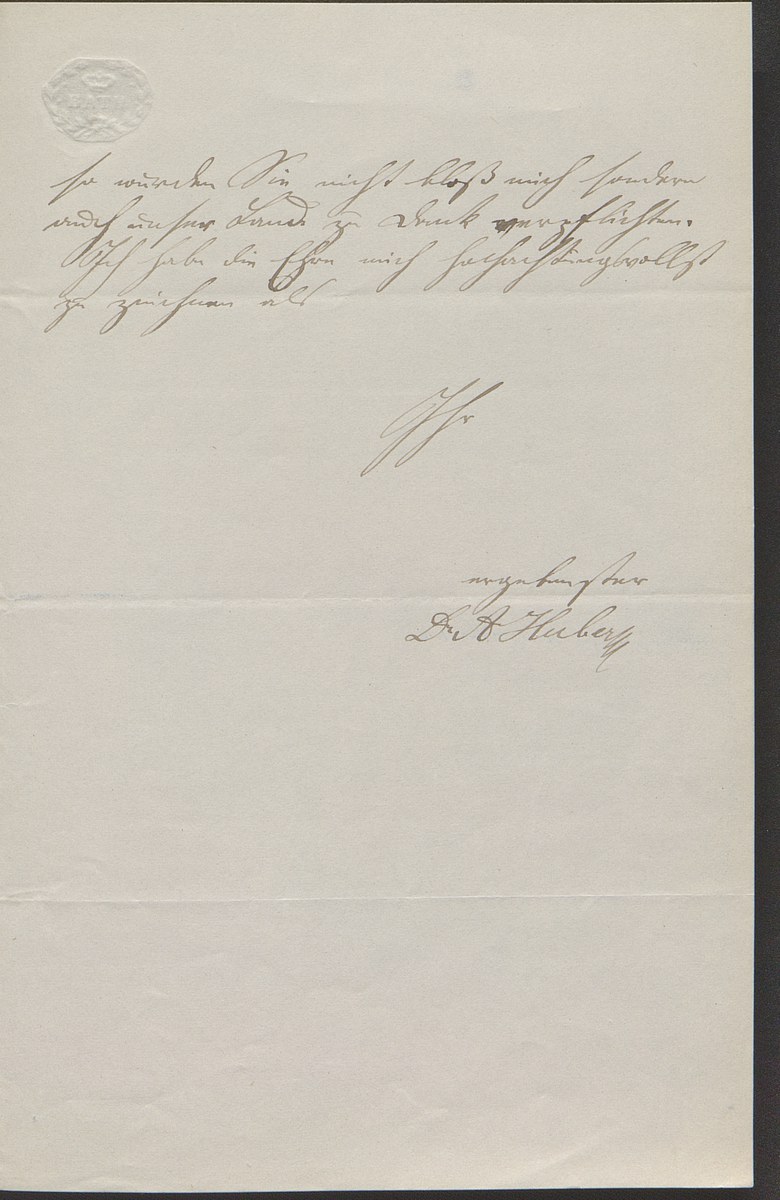 BATH
so würden Sie nicht bloß mich sondern
auch unser Land zu Dank verpflichten.
Ich habe die Ehre mich hochachtungsvollst
zu zeichnen als
Ihr
ergebenster
Dr A Huber